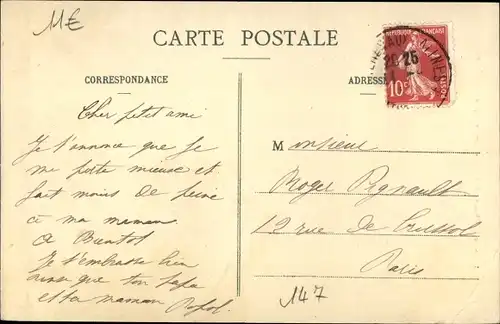 11€
CARTE POSTALE
CORRESPONDANCE
ADRESSE
REPUBLIQUE FRANÇAISE
10c
25
Cher petit ami
Je t'annonce que je
me porte mieux et
fait moins de peine
à ma maman
A Bientot
Je t'embrasse bien
ainsi que ton papa
et ta maman Popol.
Monsieur
Roger Regnault
12 rue de Crussol
Paris
147